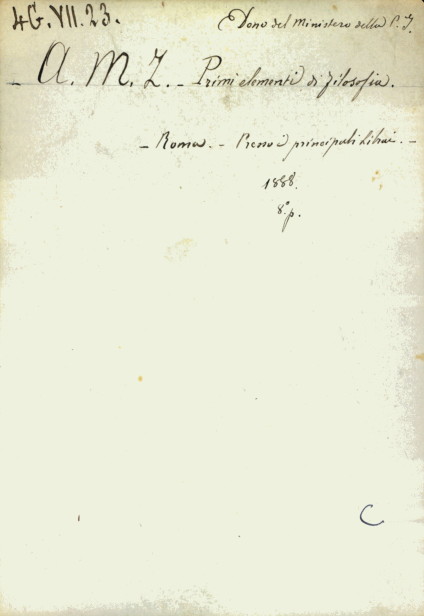 4G.VII.23.
Dono del Ministero della P. I.
A. M. Z. - Primi elementi di filosofia.
- Roma. - Presso i principali librai. -
1888.
8° p.
C